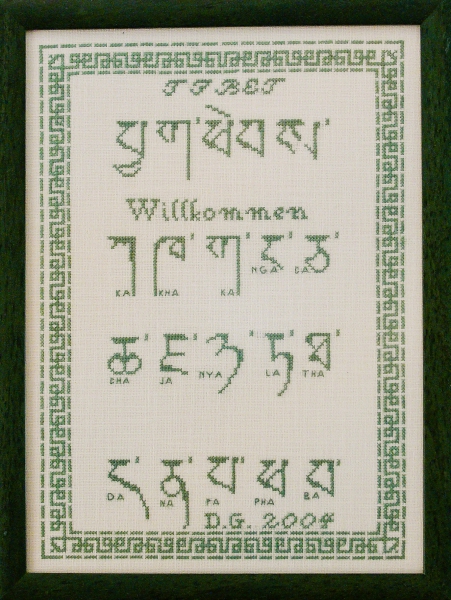 TIBET
ཕྱག་ཕེབས་
Willkommen
ཀ་ ཁ་ ག་ ང་ ཅ་
KA KHA KA NGA CA
ཆ་ ཇ་ ཉ་ ཏ་ ཐ་
CHA JA NYA TA THA
ད་ ན་ པ་ ཕ་ བ་
DA NA PA PHA BA
D.G. 2004